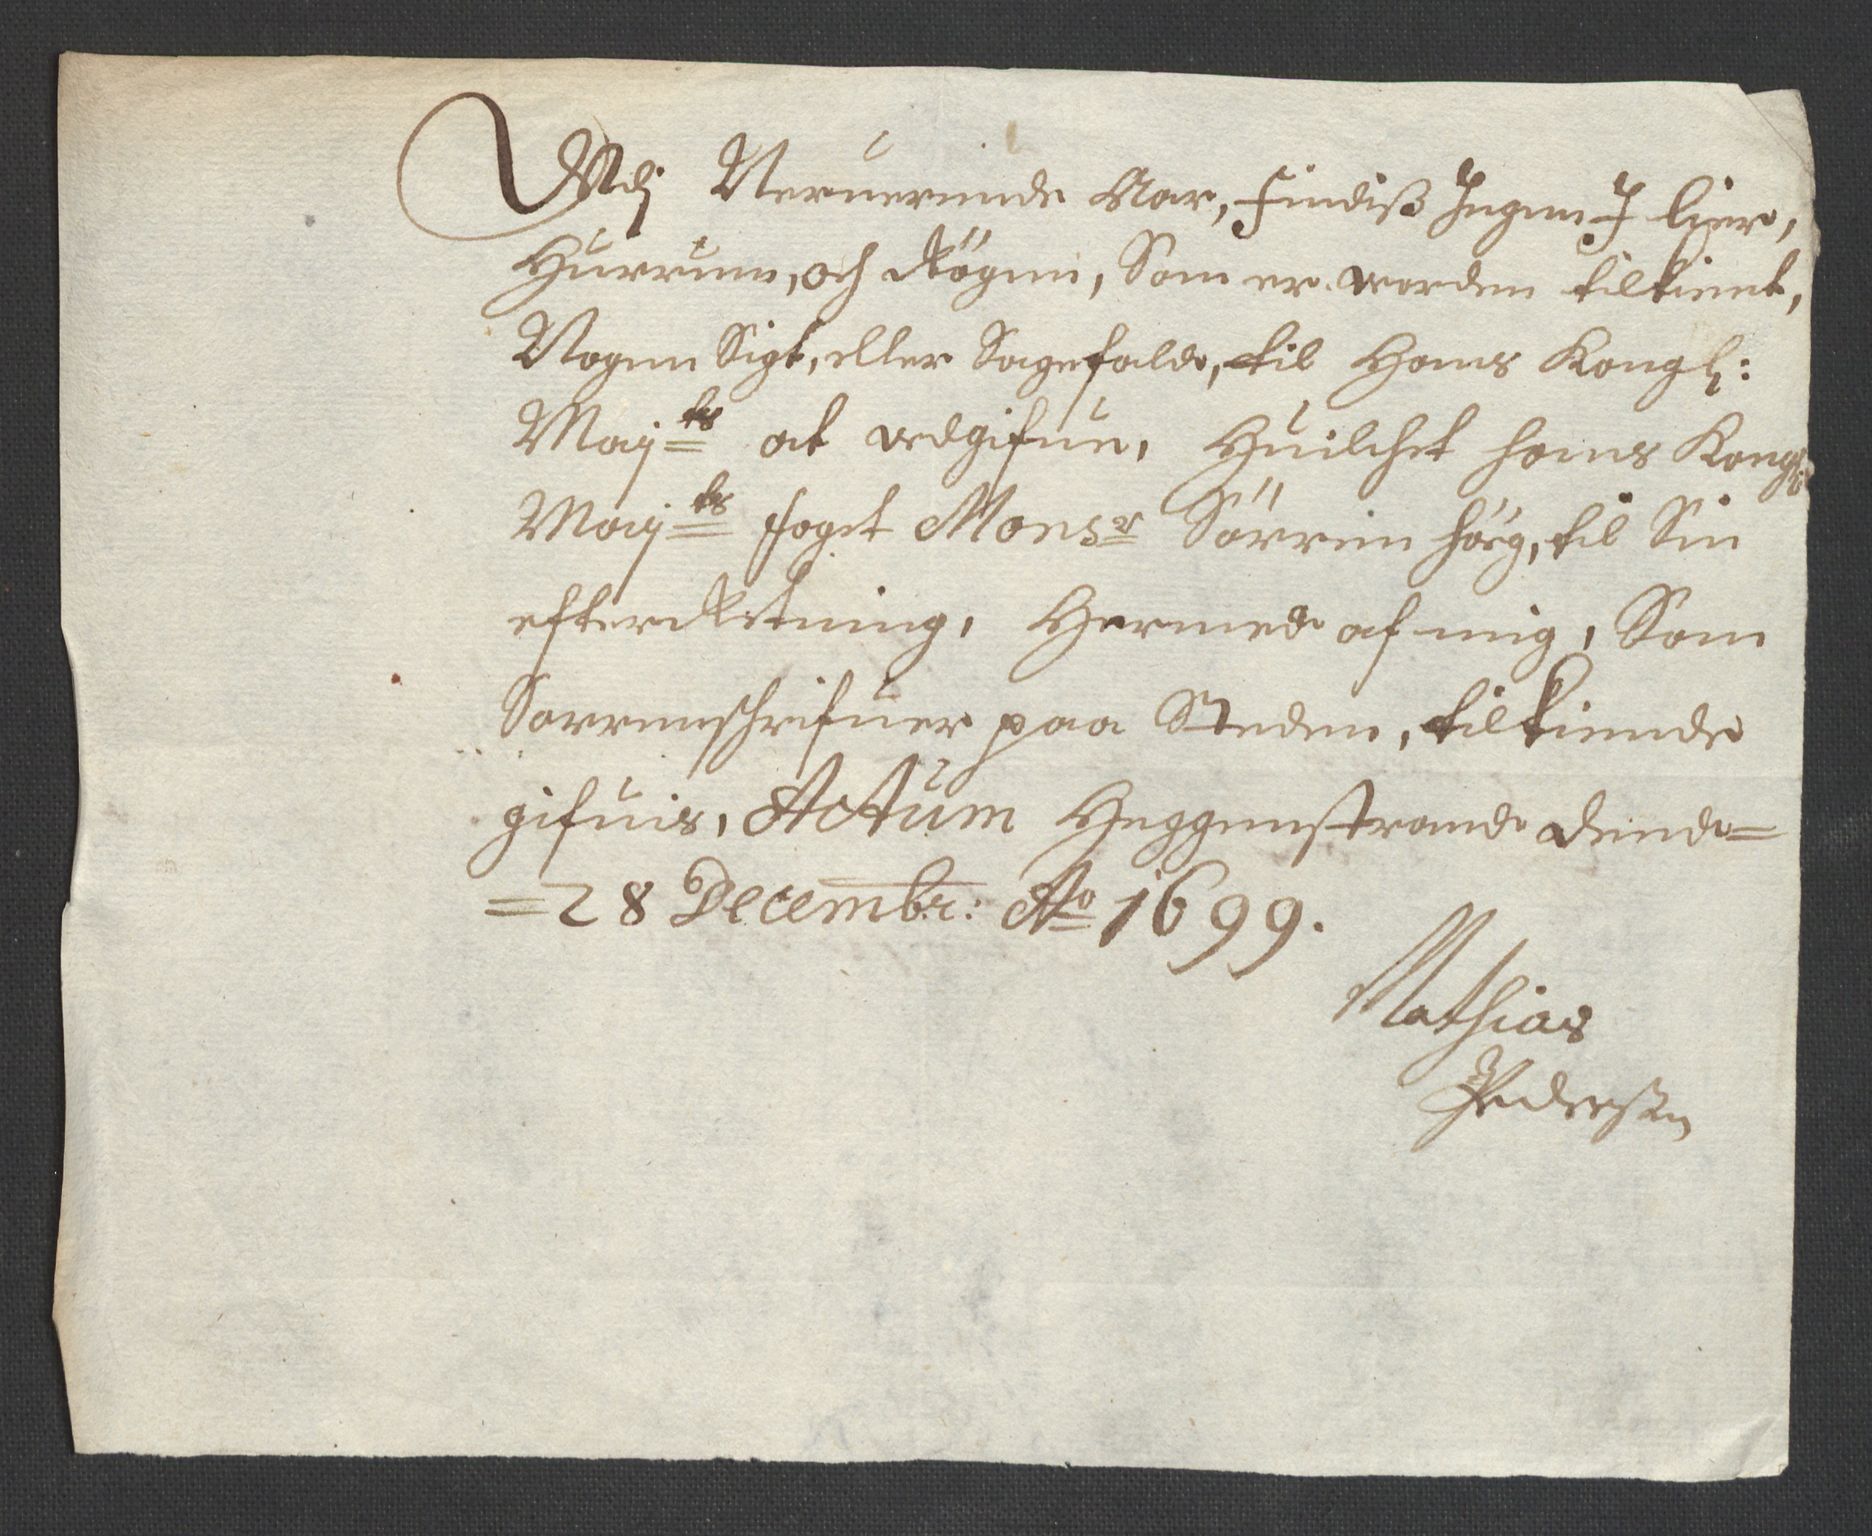 Udj Neruerende Aar, findiß Ingen J lier,
Hurrum, och Røgen, Som er worden tiltient,
Nogen Sigt, eller Sagefald, til Hans Kongl:
Mayts at udgifue, Huilchet hans Kongl:
Mayts foget Monsr Sørren høeg, til Sin
efterretning, Hermed af mig, Som
Sorrenschrifuer paa Steden, tilkiende
gifuis, Actum Heggenstrand dend=
=28 Decembr: Ao 1699.
Mathias
Pederßn